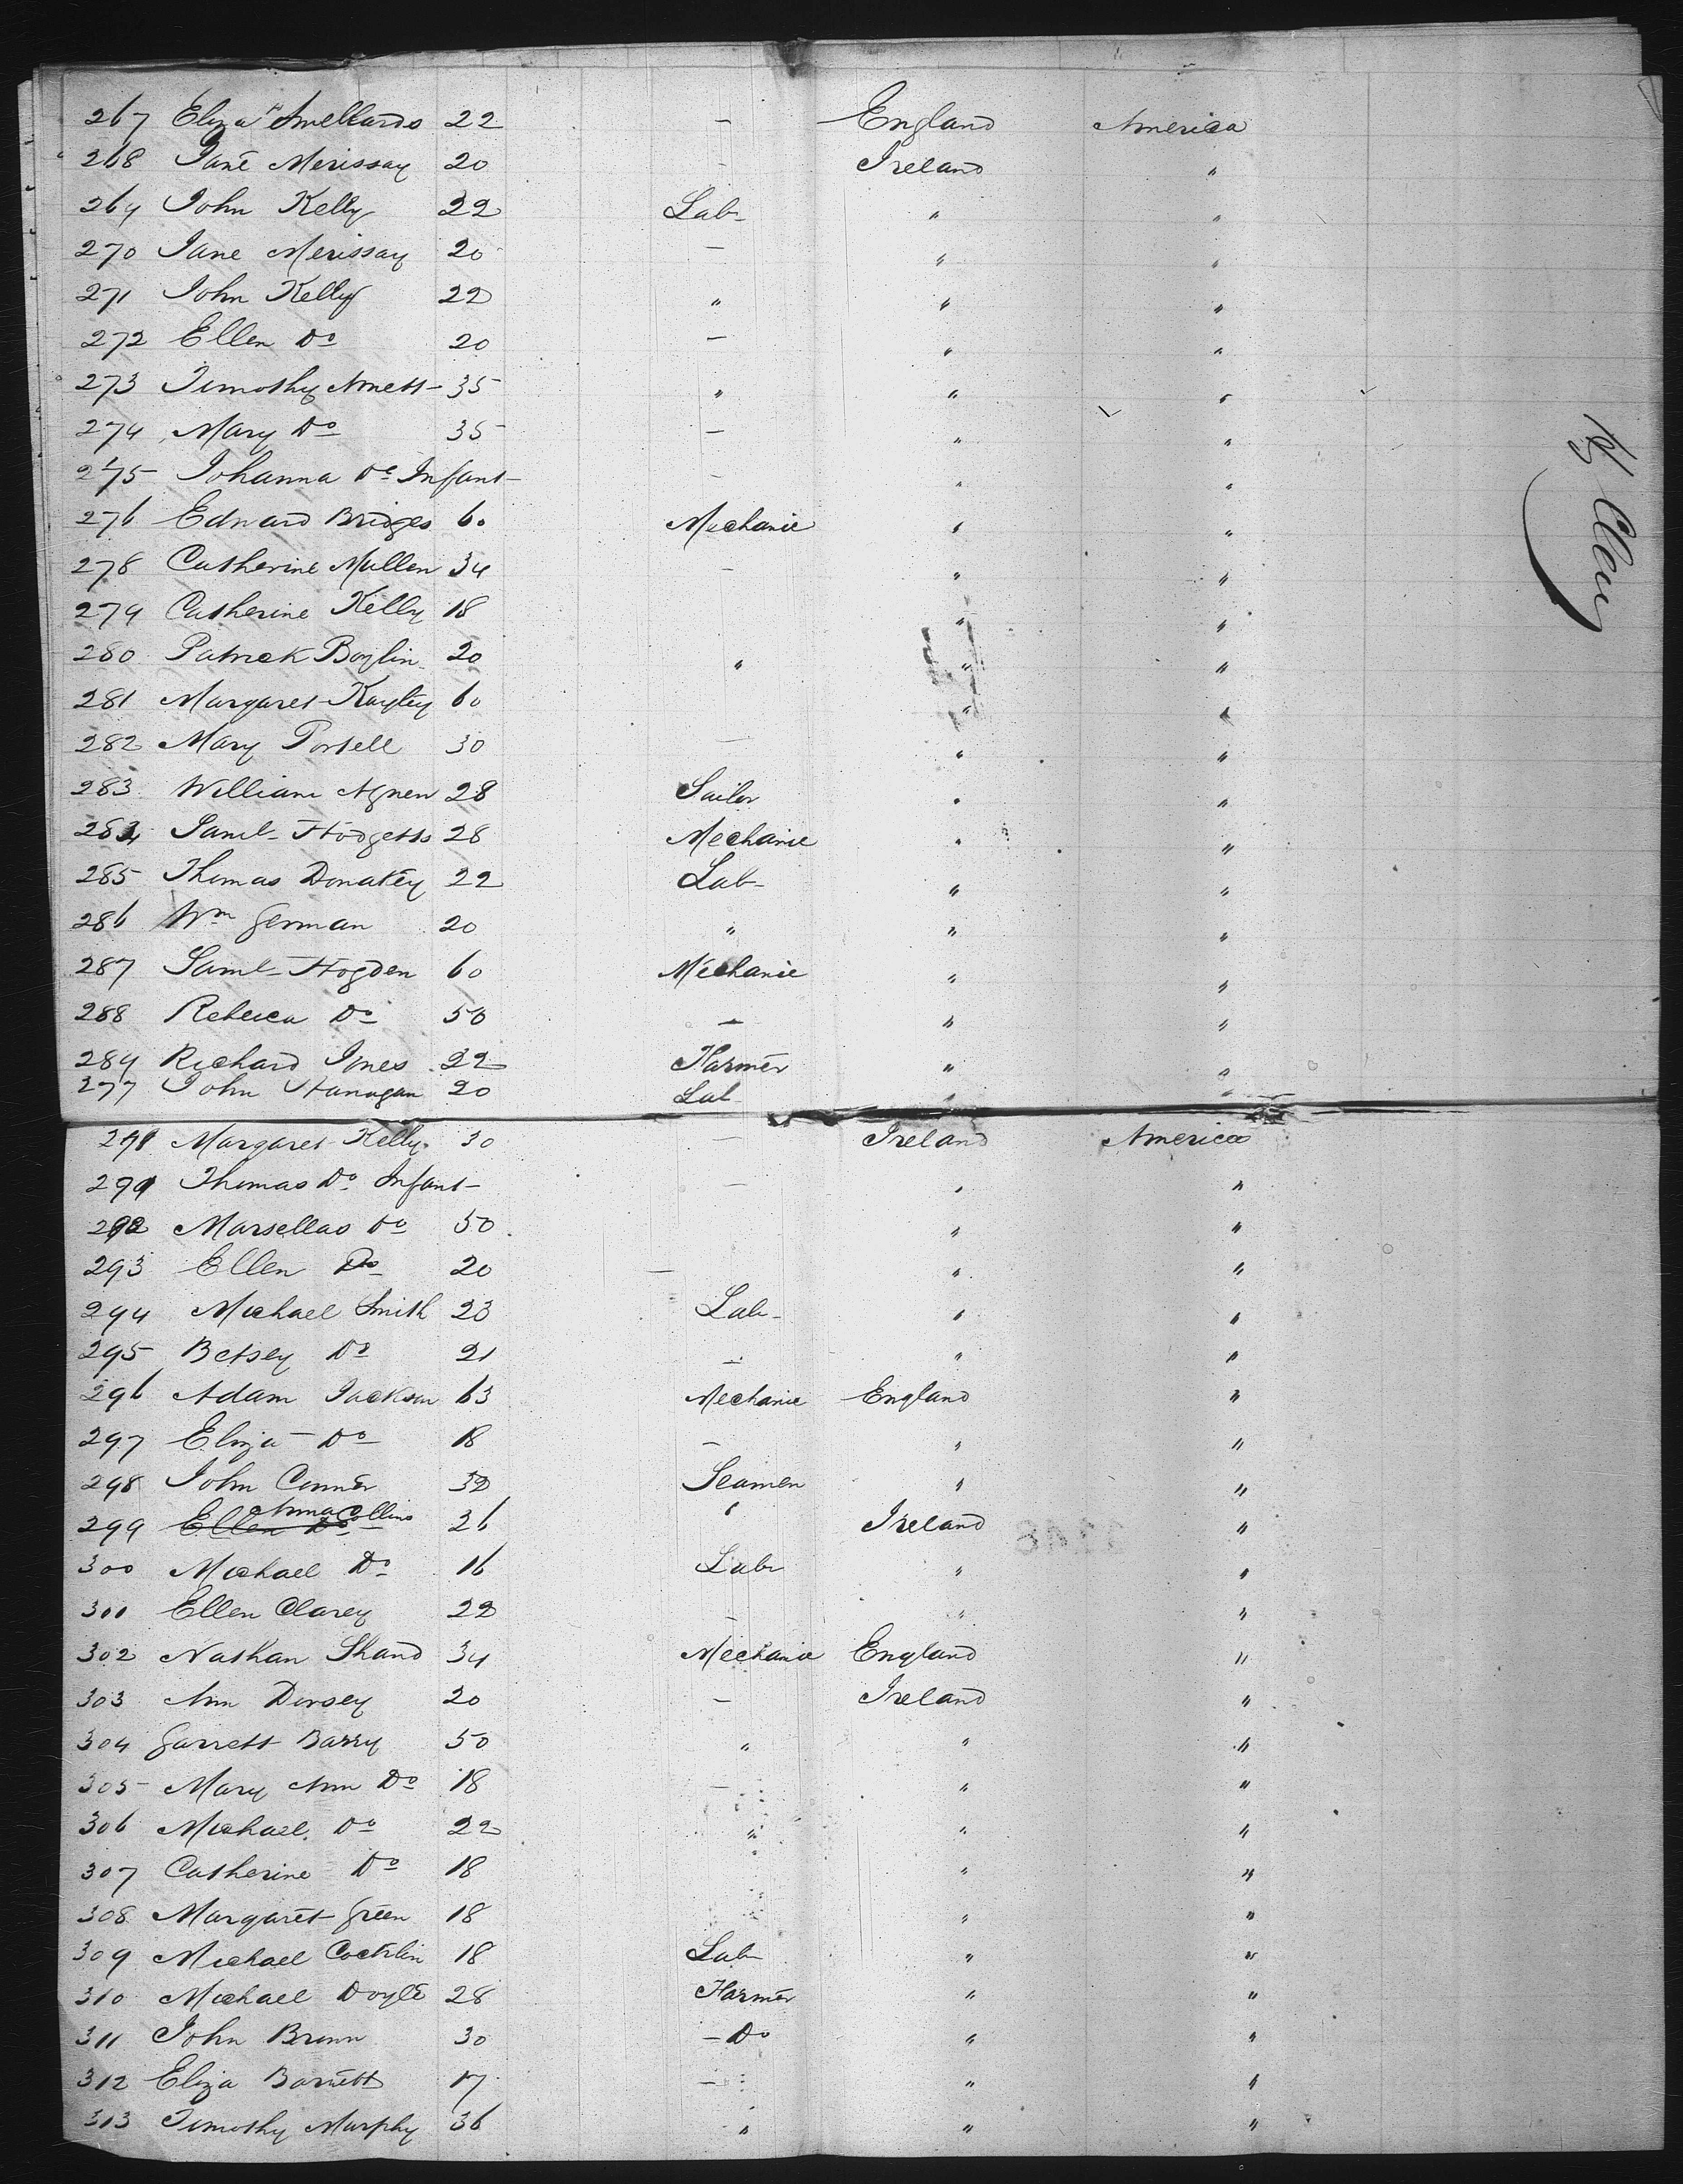 267 Eliza Smellards 22 — England America
268 Jane Merissay 20 — Ireland "
269 John Kelly 22 Lab " "
270 Jane Merissay 20 — " "
271 John Kelly 22 " " "
272 Ellen Do 20 — " "
273 Timothy Arnett 35 " " "
274 Mary Do 35 — " "
275 Johanna Do Infant — " "
276 Edward Bridges 60 Mechanic " "
278 Catherine Mullen 34 — " "
279 Catherine Kelly 18 " "
280 Patrick Boylin 20 " " "
281 Margaret Kayley 60 " "
282 Mary Portell 30 — " "
283 William Agnew 28 Sailor " "
284 Saml Hodgetts 28 Mechanic " "
285 Thomas Donakey 22 Lab " "
286 Wm German 20 " " "
287 Saml Hogden 60 Mechanic " "
288 Rebecca Do 50 — " "
289 Richard Jones 22 Farmer " "
277 John Hanagan 20 Lab " "
291 Margaret Kelly 30 — Ireland America
291 Thomas Do Infant — " "
292 Marsellas Do 50 " "
293 Ellen Do 20 — " "
294 Michael Smith 23 Lab " "
295 Betsey Do 21 — " "
296 Adam Jackson 63 Mechanic England "
297 Eliza Do 18 — " "
298 John Conner 32 Seamen " "
Anna Collins
299 Ellen Do 26 " Ireland "
300 Michael Do 16 Lab " "
301 Ellen Clarey 22 — " "
302 Nathan Shand 34 Mechanic England "
303 Ann Dorsey 20 — Ireland "
304 Garrett Barry 50 " " "
305 Mary Ann Do 18 — " "
306 Michael Do 22 " " "
307 Catherine Do 18 " "
308 Margaret Green 18 " "
309 Michael Cochlin 18 Lab " "
310 Michael Doyle 28 Farmer " "
311 John Brunn 30 — Do " "
312 Eliza Barnett 17 — " "
313 Timothy Murphy 36 " " "